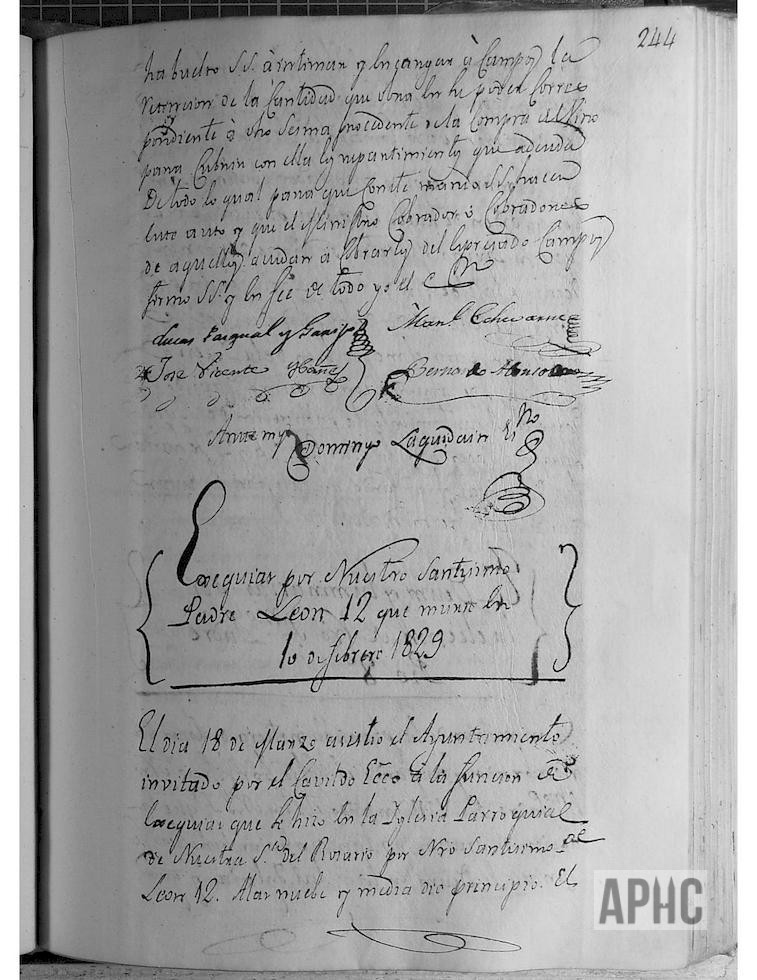 244
ha buelto S.S. à intimar y encargar à Campoy la
retencion de la Cantidad que obra en su poder Corres
pondiente à dho Sesma procedente de la Compra del Vino
para Cubrir con ella los repartimientos que adeuda
De todo lo qual para que conste mando S.S. hacer
este auto y que el Ministro Cobrador ò Cobradores
de aquellos acudan à cobrarlos del expresado Campoy
firmo S.S. y en feé de todo yo el Ess.no
Lucas Pasqual y Garizpe Man.l Echevarria
José Vicente Ybañez Bernardo Alonso
Antemy
Domingo Laguidain Es.no
Exequias por Nuestro Santisimo
Padre Leon 12 que murio en
10 de febrero 1829
El dia 18 de Marzo asistio el Ayuntamiento
invitado por el Cavildo Ecco à la funcion de
Exequias que se hizo en la Iglesia Parroquial
de Nuestra S.ra del Rosario por Nro Santisimo P.e
Leon 12. A las nuebe y media dio principio. El
APHC